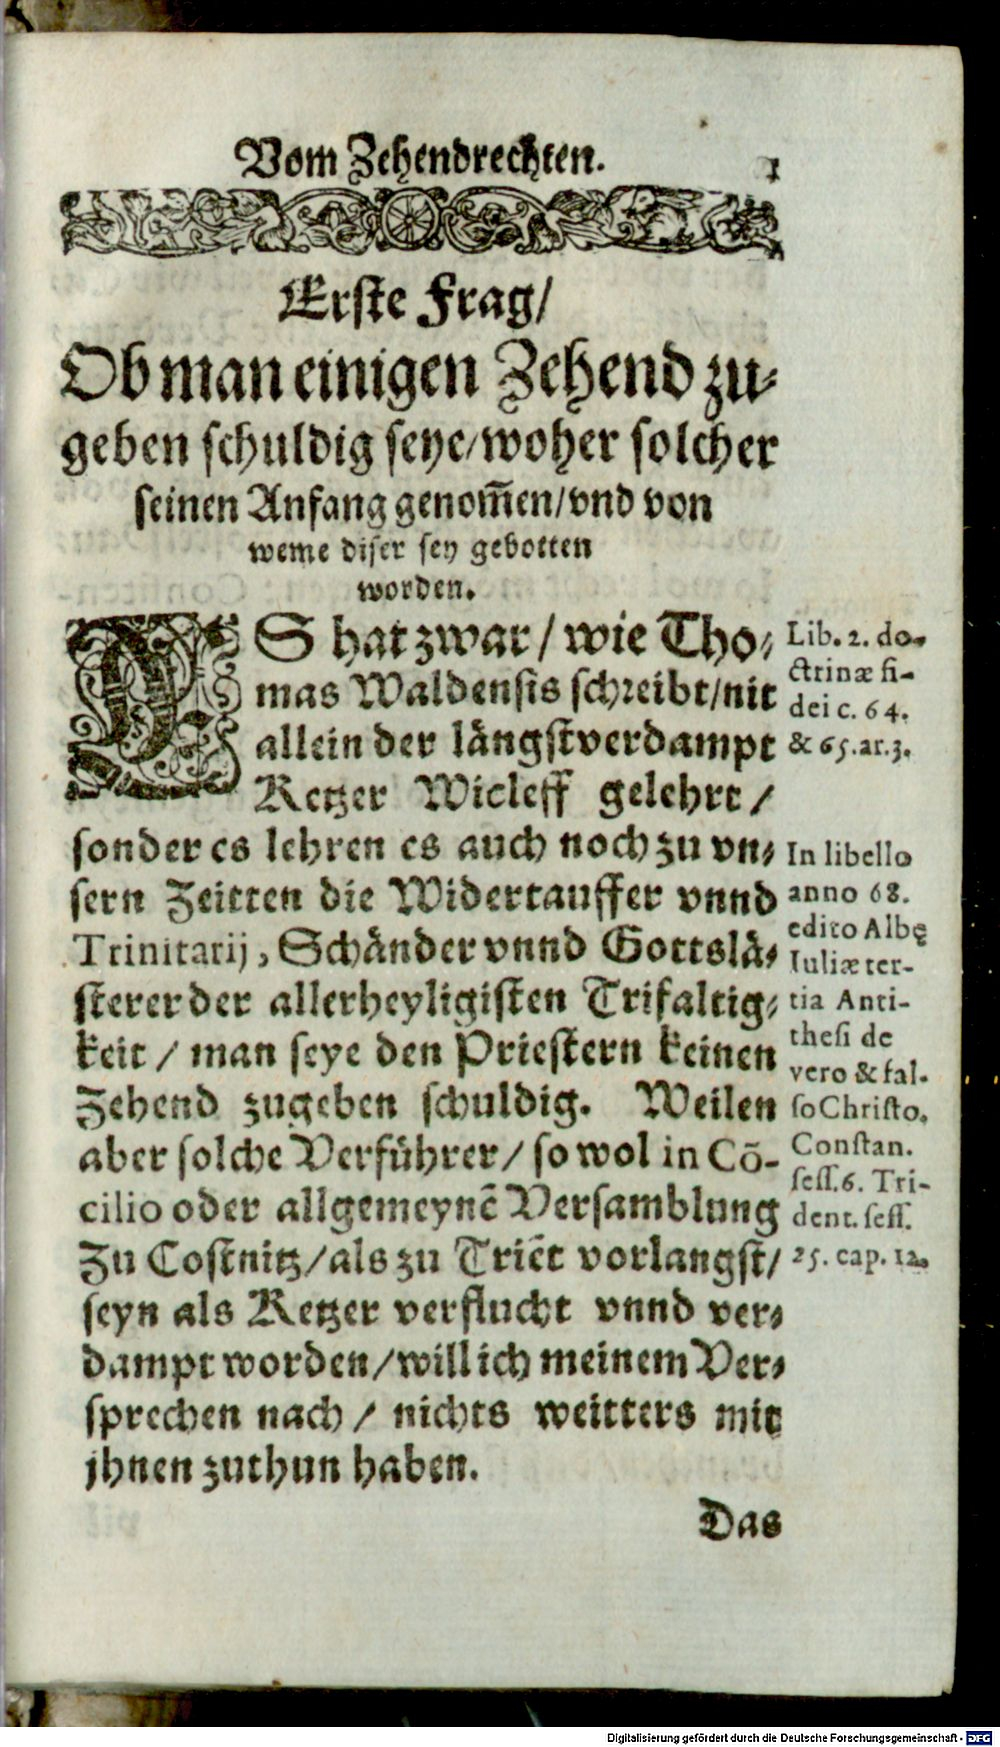 Vom Zehendrechten. 1
Erste Frag/
Ob man einigen Zehend zu⸗
geben schuldig seye/woher solcher
seinen Anfang genom̃en/vnd von
weme diser sey gebotten
worden.
ES hat zwar / wie Tho⸗
mas Waldensis schreibt/nit
allein der längstverdampt
Ketzer Wicleff gelehrt /
sonder es lehren es auch noch zu vn⸗
sern Zeitten die Widertauffer vnnd
Trinitarij, Schänder vnnd Gottslä⸗
sterer der allerheyligisten Trifaltig⸗
keit / man seye den Priestern keinen
Zehend zugeben schuldig. Weilen
aber solche Verführer / so wol in Cõ-
cilio oder allgemeynẽ Versamblung
Zu Costnitz/als zu Triẽt vorlangst/
seyn als Ketzer verflucht vnnd ver⸗
dampt worden/will ich meinem Ver⸗
sprechen nach / nichts weitters mit
jhnen zuthun haben.
Das
Lib. 2. do-
ctrinæ fi-
dei c. 64.
& 65.ar.3.
In libello
anno 68.
edito Albę
Iuliæ ter-
tia Anti-
thesi de
vero & fal-
so Christo.
Constan.
sess.6. Tri-
dent. sess.
25. cap. 12.
Digitalisierung gefördert durch die Deutsche Forschungsgemeinschaft - DFG